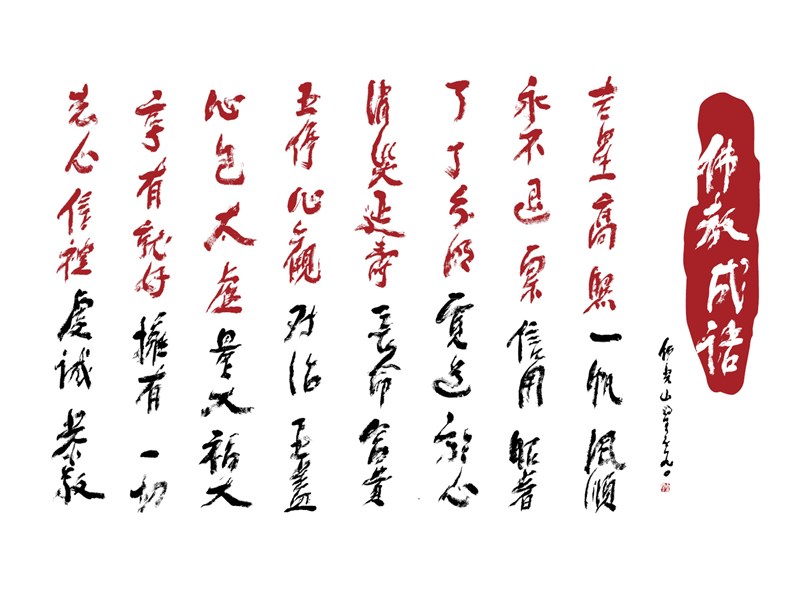 佛教成語
佛光山星雲
吉星高照一帆風順
永不退票信用昭著
了了分明寬心
消災延壽長命富貴
五停心觀對治五蓋
心包太虛量大福大
享有就好擁有一切
志心信禮虔誠恭敬